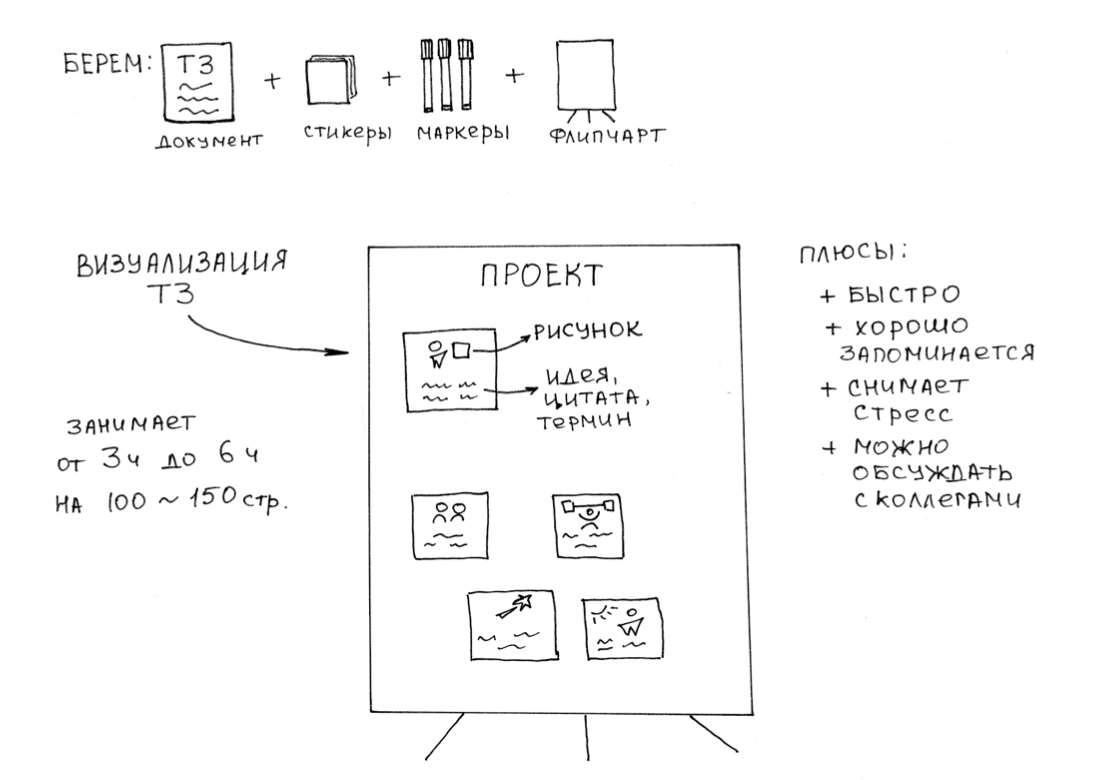 БЕРЕМ:
ТЗ
+ + +
ДОКУМЕНТ
СТИКЕРЫ
МАРКЕРЫ
ФЛИПЧАРТ
ВИЗУАЛИЗАЦИЯ
ТЗ
ЗАНИМАЕТ
ОТ 3ч ДО 6ч
НА 100 ~ 150 стр.
ПРОЕКТ
РИСУНОК
ИДЕЯ,
ЦИТАТА,
ТЕРМИН
ПЛЮСЫ:
+ БЫСТРО
+ ХОРОШО
ЗАПОМИНАЕТСЯ
+ СНИМАЕТ
СТРЕСС
+ МОЖНО
ОБСУЖДАТЬ
С КОЛЛЕГАМИ